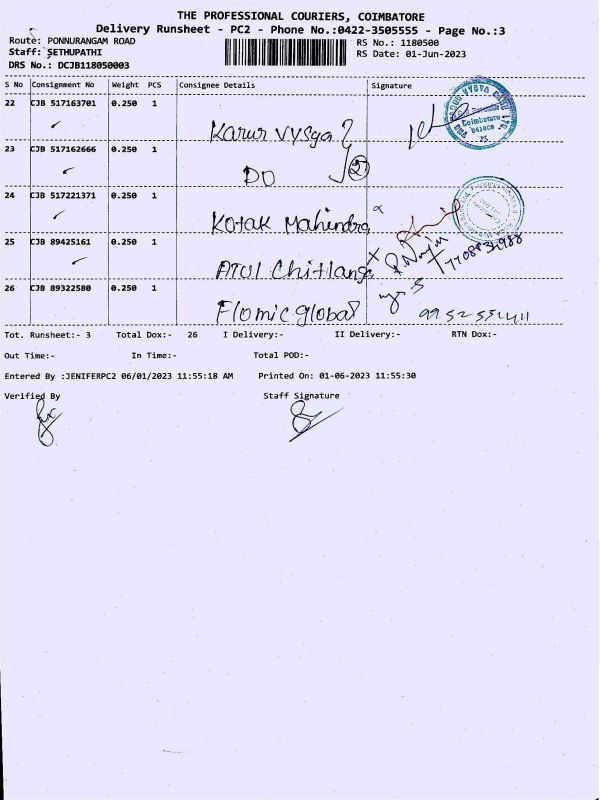 THE PROFESSIONAL COURIERS, COIMBATORE
Delivery Runsheet - PC2 - Phone No.:0422-3505555 - Page No.:3
Route: PONNURANGAM ROAD RS No.: 1180500
Staff: SETHUPATHI RS Date: 01-Jun-2023
DRS No.: DCJB118050003
S No Consignment No Weight PCS Consignee Details Signature
22 CJB 517163701 0.250 1
Karur Vysya
23 CJB 517162666 0.250 1
DO 2
24 CJB 517221371 0.250 1
Kotak Mahindra
25 CJB 89425161 0.250 1
Atul Chitlang
26 CJB 89322580 0.250 1
Flomic global
Tot. Runsheet:- 3 Total Dox:- 26 I Delivery:- II Delivery:- RTN Dox:-
Out Time:- In Time:- Total POD:-
Entered By :JENIFERPC2 06/01/2023 11:55:18 AM Printed On: 01-06-2023 11:55:30
Verified By Staff Signature